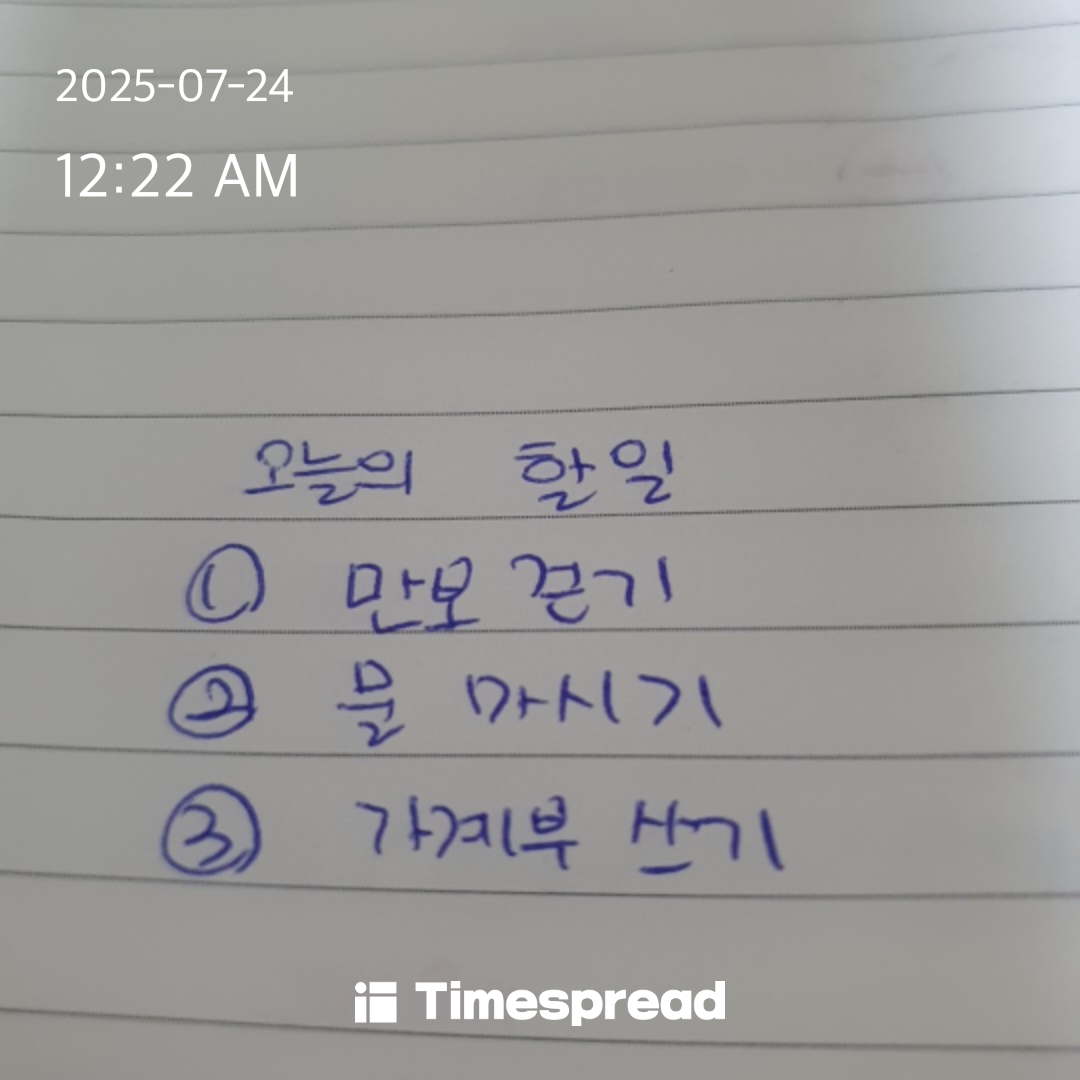 2025-07-24
12:22 AM
오늘의 할일
① 만보 걷기
② 물 마시기
③ 가계부 쓰기
Timespread